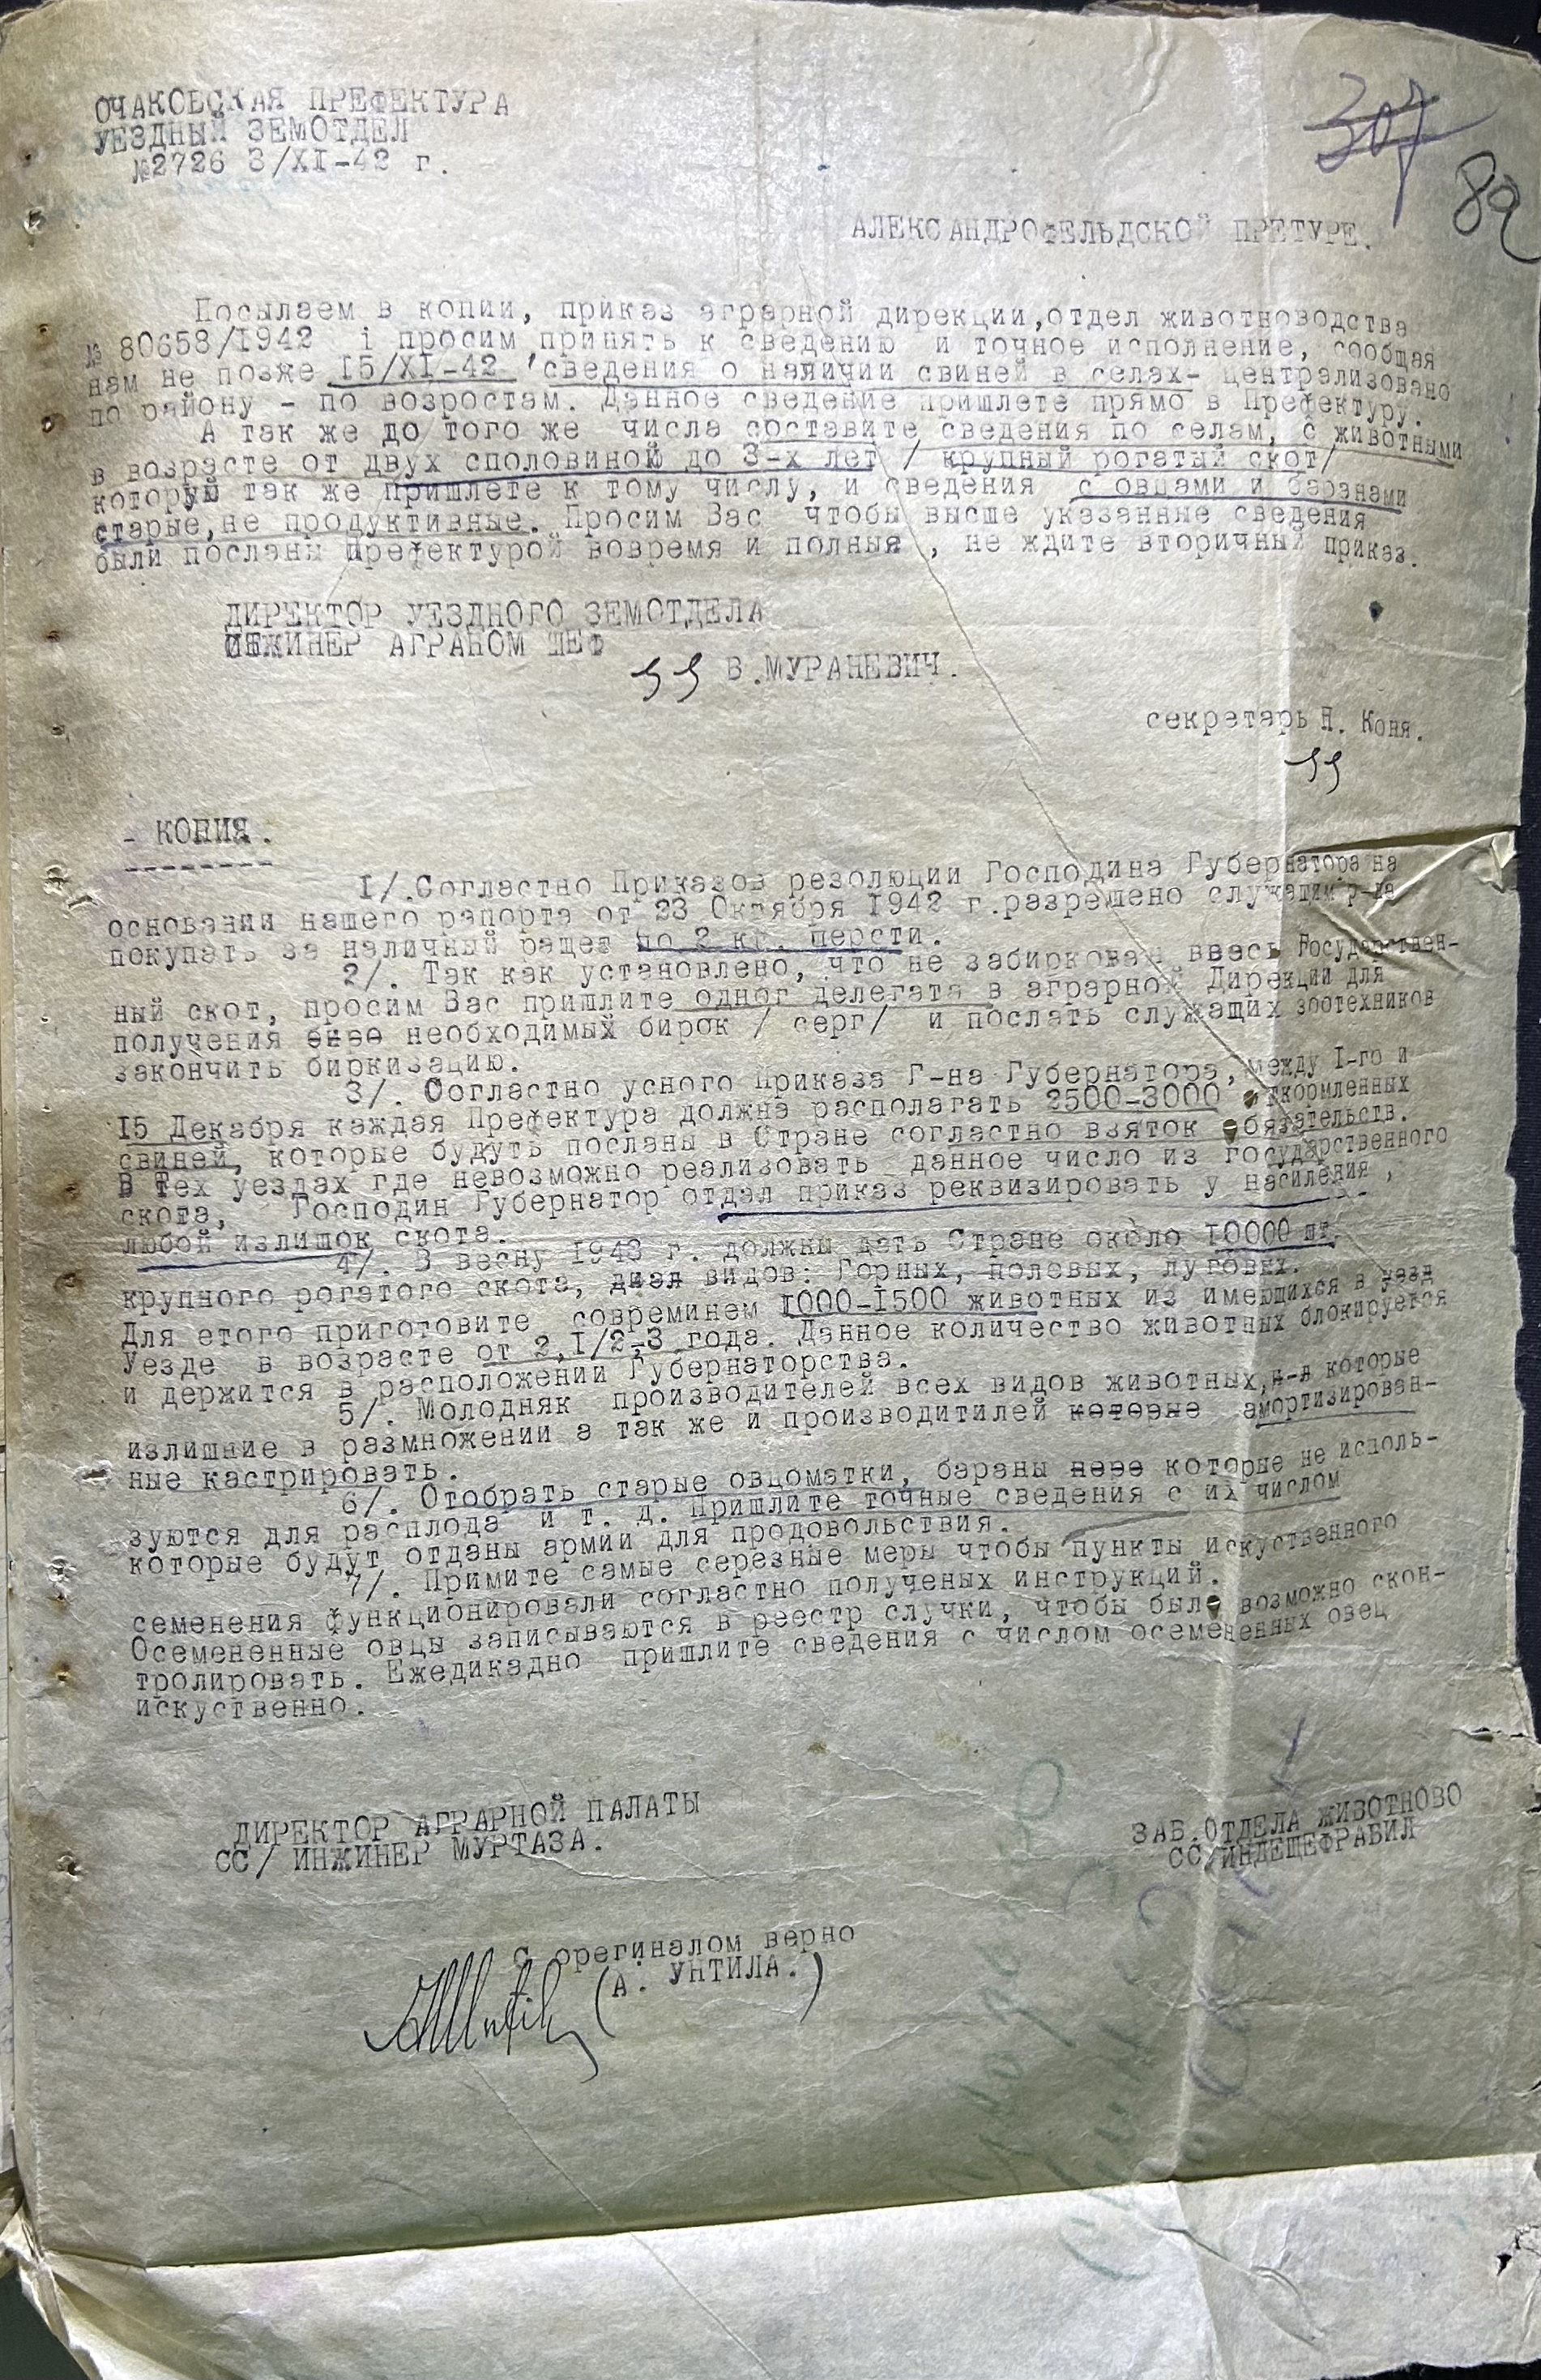 ОЧАКОВСКАЯ ПРЕФЕКТУРА
УЕЗДНЫЙ ЗЕМОТДЕЛ
№2726 3/XI-42 г.
307
89
АЛЕКСАНДРОФЕЛЬДСКОЙ ПРЕТУРЕ.
Посылаем в копии, приказ аграрной дирекции,отдел животноводства
№ 80658/1942 і просим принять к сведению и точное исполнение, сообщая
нам не позже 15/XI-42 сведения о наличии свиней в селах- централизовано
по району - по возростам. Данное сведение пришлете прямо в Префектуру.
А так же до того же числа составите сведения по селам, с животными
в возрасте от двух споловиной до 3-х лет / крупный рогатый скот/
которую так же пришлете к тому числу, и сведения с овцами и баранами
старые,не продуктивные. Просим Вас чтобы высше указанные сведения
были посланы Префектурой вовремя и полныя , не ждите вторичный приказ.
ДИРЕКТОР УЕЗДНОГО ЗЕМОТДЕЛА
ИНЖИНЕР АГРАНОМ ШЕФ
В.МУРАНЕВИЧ.
секретарь Н. Коня.
- КОПИЯ.
1/.Согластно Приказов резолюции Господина Губернатора на
основании нашего рапорта от 23 Октября 1942 г.разрешено служащим р-на
покупать за наличный ращет по 2 кг. шерсти.
2/. Так как установлено, что не забиркован ввесь Государствен-
ный скот, просим Вас пришлите одног делегата в аграрной Дирекции для
получения необходимых бирок / серг/ и послать служащих зоотехников
закончить биркизацию.
3/. Согластно усного Приказа Г-на Губернатора, между 1-го и
15 Декабря каждая Префектура должна располагать 2500-3000 откормленных
свиней, которые будуть посланы в Стране согластно взяток обязательств.
В тех уездах где невозможно реализовать данное число из государственного
скота, Господин Губернатор отдал приказ реквизировать у насиления ,
любой излишок скота.
4/. В весну 1943 г. должны дать Стране около 10000 шт.
крупного рогатого скота, видов: Горных, полевых, луговых.
Для етого приготовите совреминем 1000-1500 животных из имеющихся в уезд
Уезде в возрасте от 2,1/2-3 года. Данное количество животных блокируется
и держится в расположении Губернаторства.
5/. Молодняк производителей всех видов животных, которые
излишние в размножении а так же и производитилей которые амортизирован-
ные кастрировать.
6/. Отобрать старые овцоматки, бараны которые не исполь-
зуются для расплода и т. д. Пришлите точные сведения с их числом
которые будут отданы армии для продовольствия.
7/. Примите самые серезные меры чтобы пункты искуственного
семенения функционировали согластно полученых инструкций.
Осемененные овцы записываются в реестр случки, чтобы было возможно скон-
тролировать. Ежедикадно пришлите сведения с числом осемененных овец
искуственно.
ДИРЕКТОР АГРАРНОЙ ПАЛАТЫ
СС/ ИНЖИНЕР МУРТАЗА.
ЗАВ.ОТДЕЛА ЖИВОТНОВО
СС/ИНДЕШЕФРАБИЛ
С орегиналом верно
(А. УНТИЛА.)